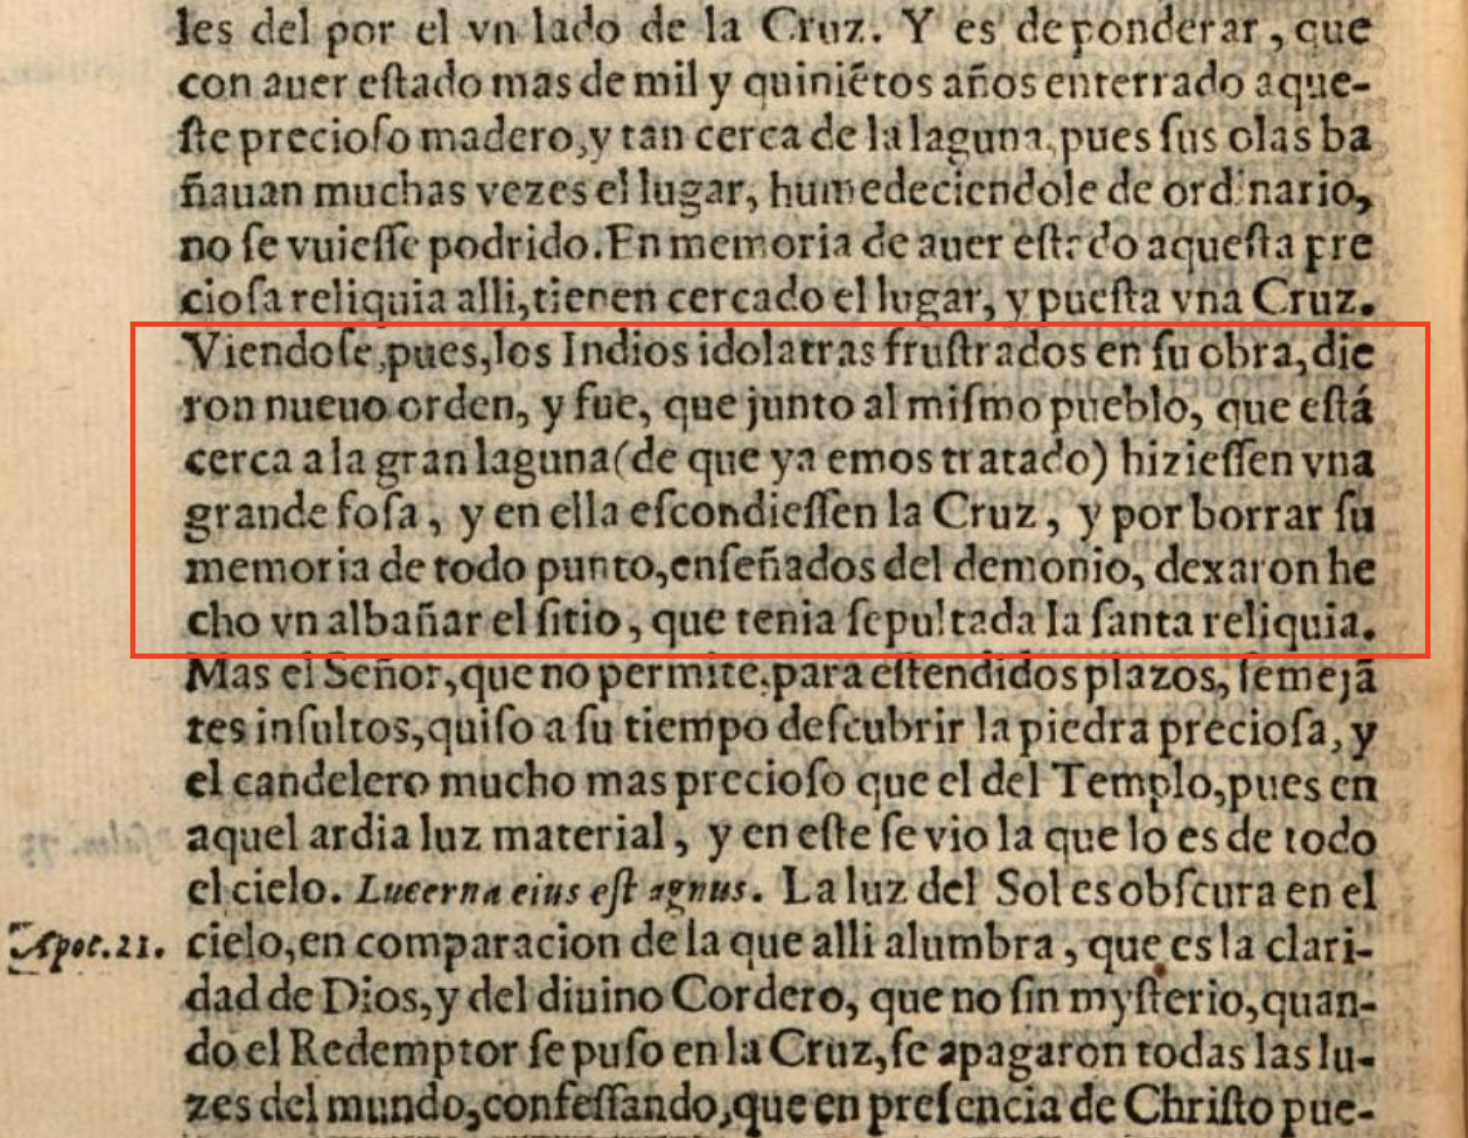 les del por el vn lado de la Cruz. Y es de ponderar, que
con auer eſtado mas de mil y quiniẽtos años enterrado aque-
ſte precioſo madero, y tan cerca de la laguna, pues ſus olas ba
ñauan muchas vezes el lugar, humedeciendole de ordinario,
no ſe vuieſſe podrido. En memoria de auer eſtado aqueſta pre
cioſa reliquia alli, tienen cercado el lugar, y pueſta vna Cruz.
Viendoſe, pues, los Indios idolatras fruſtrados en ſu obra, die
ron nueuo orden, y fue, que junto al miſmo pueblo, que eſtá
cerca a la gran laguna (de que ya emos tratado) hizieſſen vna
grande foſa, y en ella eſcondieſſen la Cruz, y por borrar ſu
memoria de todo punto, enſeñados del demonio, dexaron he
cho vn albañar el ſitio, que tenia ſepultada la ſanta reliquia.
Mas el Señor, que no permite, para eſtendidos plazos, ſemejã
tes inſultos, quiſo a ſu tiempo deſcubrir la piedra precioſa, y
el candelero mucho mas precioſo que el del Templo, pues en
aquel ardia luz material, y en eſte ſe vio la que lo es de todo
el cielo. Lucerna eius eſt agnus. La luz del Sol es obſcura en el
Apoc. 21. cielo, en comparacion de la que alli alumbra, que es la clari-
dad de Dios, y del diuino Cordero, que no ſin myſterio, quan-
do el Redemptor ſe puſo en la Cruz, ſe apagaron todas las lu-
zes del mundo, confeſſando, que en preſencia de Chriſto pue-